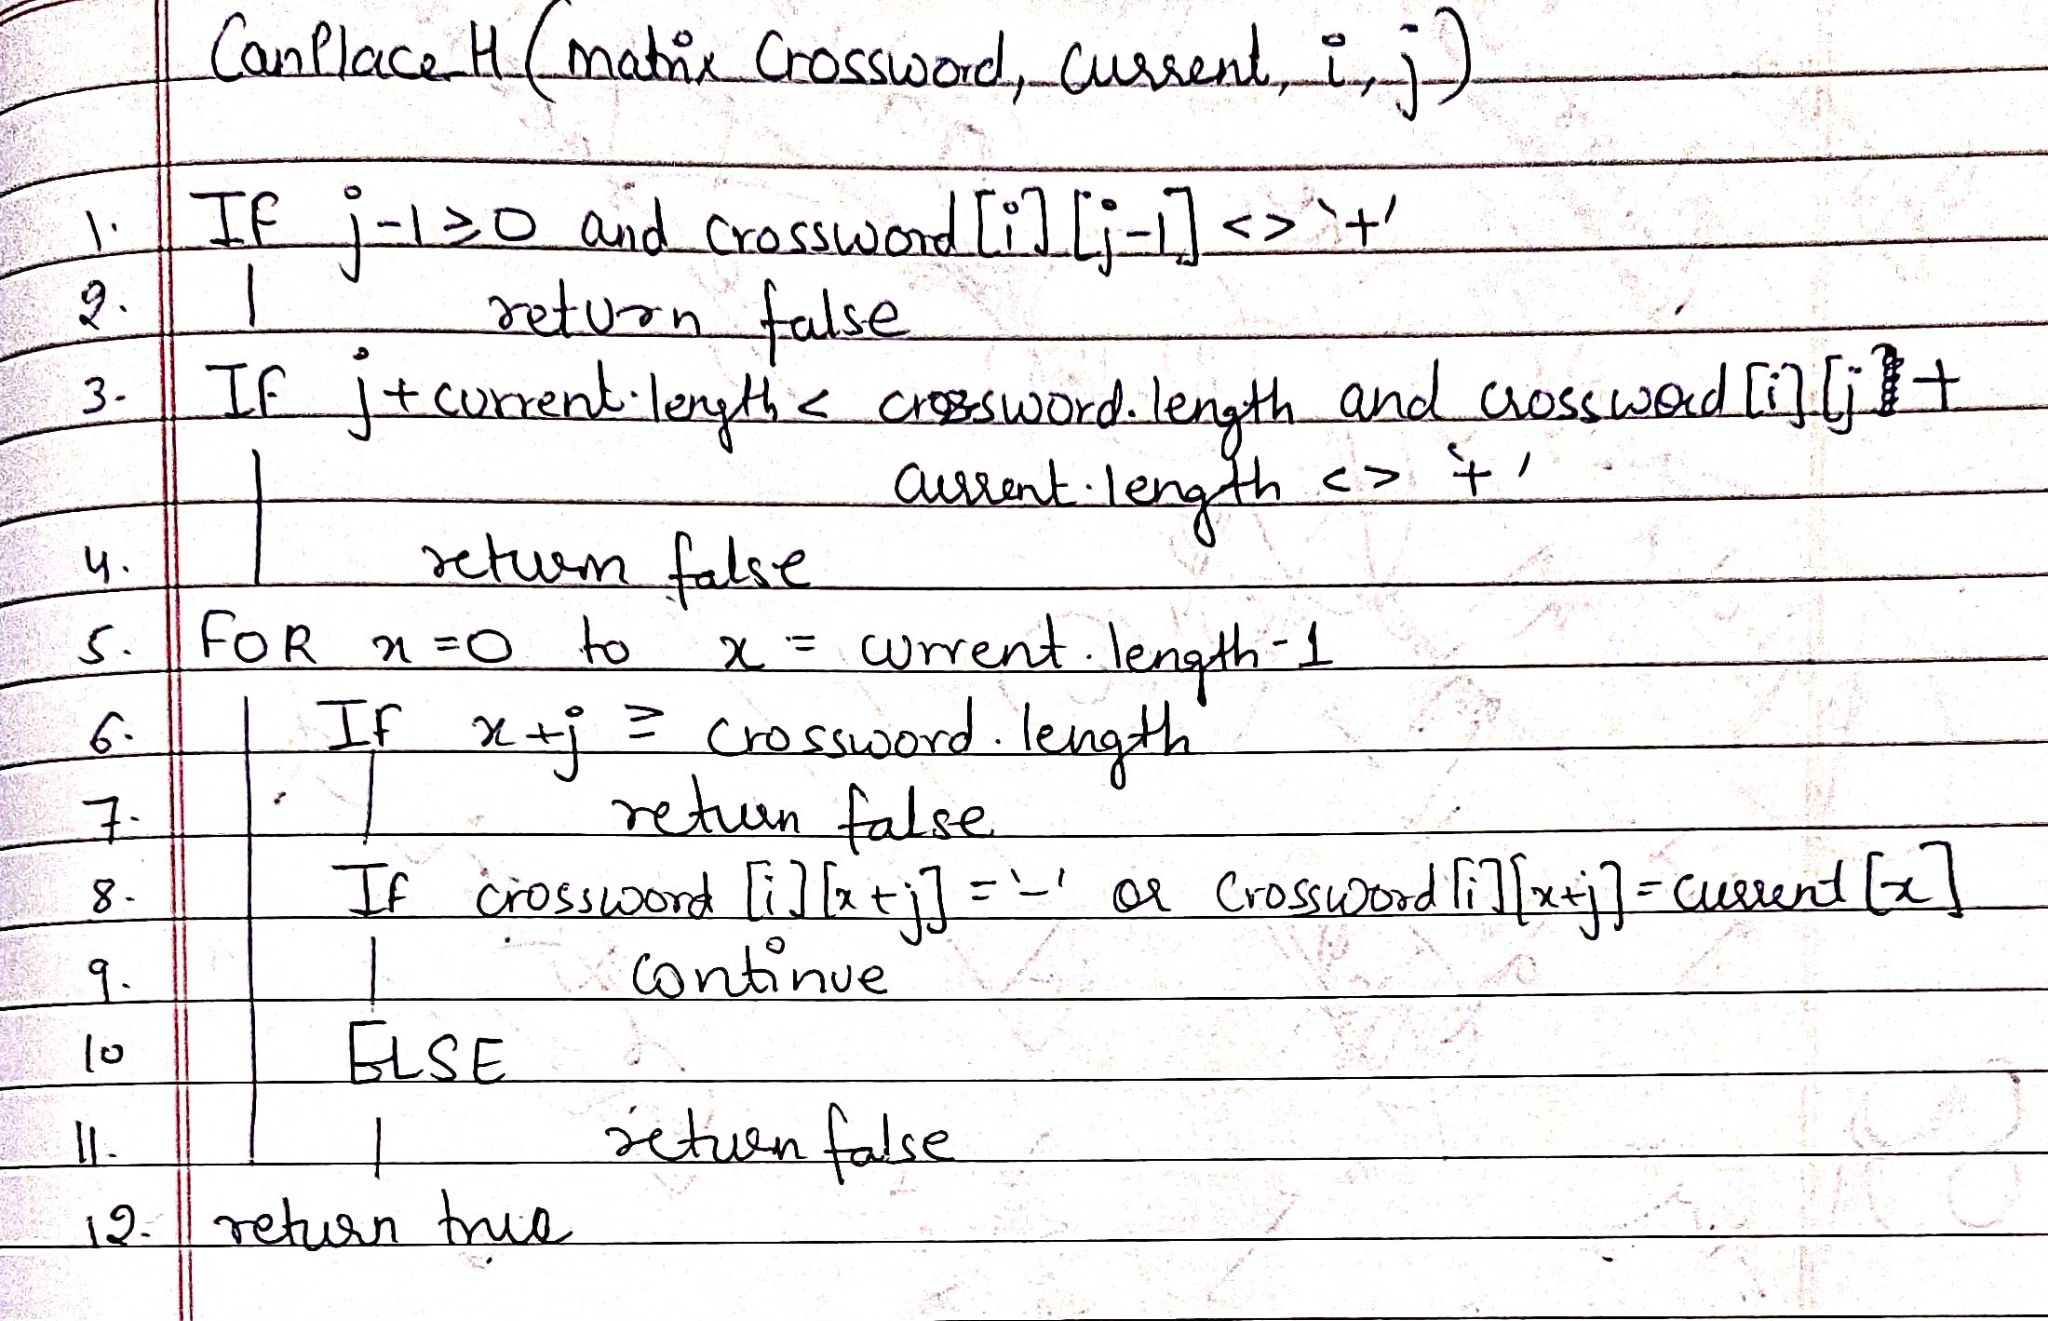 CanPlace H (matrix Crossword, Current, i, j)
1. If j-1≥0 and crossword [i] [j-1] <> '+'
2. return false
3. If j + current.length < crossword.length and crossword [i] [j +
current.length <> '+'
4. return false
5. FOR x=0 to x = current.length-1
6. If x+j ≥ crossword.length
7. return false
8. If crossword [i] [x+j] = '-' or Crossword [i] [x+j] = current [x]
9. continue
10 ELSE
11. return false
12. return true